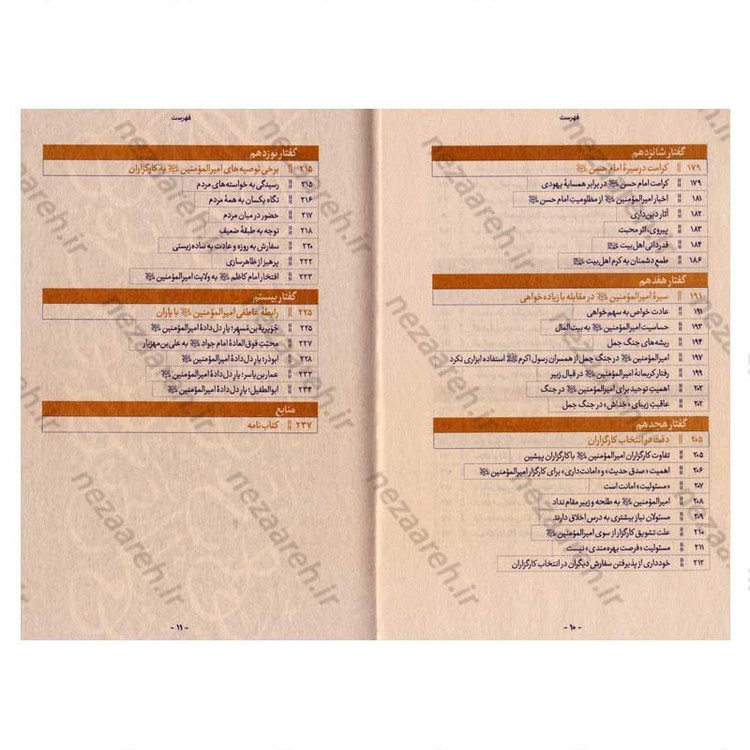 فهرست
گفتار شانزدهم
۱۷۹ کرامت در سیرهٔ امام حسن ﷷ
۱۷۹ کرامت امام حسن ﷷ در برابر همسایهٔ یهودی
۱۸۱ اخبار امیرالمؤمنین ﷷ از مظلومیت امام حسن ﷷ
۱۸۲ آثار دین‌داری
۱۸۳ پیروی، اثر محبت
۱۸۴ قدردانی اهل بیت ﷷ
۱۸۶ طمع دشمنان به کرم اهل بیت ﷷ
گفتار هفدهم
۱۹۱ سیرهٔ امیرالمؤمنین ﷷ در مقابله با زیاده‌خواهی
۱۹۱ عادت خواص به سهم‌خواهی
۱۹۳ حساسیت امیرالمؤمنین ﷷ به بیت‌المال
۱۹۴ ریشه‌های جنگ جمل
۱۹۷ امیرالمؤمنین ﷷ در جنگ جمل از همسران رسول اکرم ﷺ استفاده ابزاری نکرد
۱۹۹ رفتار کریمانهٔ امیرالمؤمنین ﷷ در قبال زبیر
۲۰۲ اهمیت توحید برای امیرالمؤمنین ﷷ در جنگ
۲۰۲ عاقبت زیبای «خِداش» در جنگ جمل
گفتار هجدهم
۲۰۵ دقت در انتخاب کارگزاران
۲۰۵ تفاوت کارگزاران امیرالمؤمنین ﷷ با کارگزاران پیشین
۲۰۶ اهمیت «صدق حدیث» و «امانت‌داری» برای کارگزار امیرالمؤمنین ﷷ
۲۰۷ «مسئولیت» امانت است
۲۰۸ امیرالمؤمنین ﷷ به طلحه و زبیر مقام نداد
۲۰۹ مسئولان نیاز بیشتری به درس اخلاق دارند
۲۱۰ علت تشویق کارگزار از سوی امیرالمؤمنین ﷷ
۲۱۱ مسئولیت «فرصت بهره‌مندی» نیست
۲۱۲ خودداری از پذیرفتن سفارش دیگران در انتخاب کارگزاران
- ۱۰ -
فهرست
گفتار نوزدهم
۲۱۵ برخی توصیه‌های امیرالمؤمنین ﷷ به کارگزاران
۲۱۵ رسیدگی به خواسته‌های مردم
۲۱۶ نگاه یکسان به همهٔ مردم
۲۱۷ حضور در میان مردم
۲۱۸ توجه به طبقهٔ ضعیف
۲۲۰ سفارش به روزه و عادت به ساده‌زیستی
۲۲۲ پرهیز از ظاهرسازی
۲۲۳ افتخار امام کاظم ﷷ به ولایت امیرالمؤمنین ﷷ
گفتار بیستم
۲۲۵ رابطهٔ عاطفی امیرالمؤمنین ﷷ با یاران
۲۲۵ جُوَیریة بن مُسهِر؛ یارِ دل‌دادهٔ امیرالمؤمنین ﷷ
۲۲۷ محبّتِ فوق‌العادهٔ امام جواد ﷷ به علی بن مهزیار
۲۲۸ ابوذر؛ یارِ دل‌دادهٔ امیرالمؤمنین ﷷ
۲۳۳ عمار بن یاسر؛ یارِ دل‌دادهٔ امیرالمؤمنین ﷷ
۲۳۴ ابوالطفیل؛ یارِ دل‌دادهٔ امیرالمؤمنین ﷷ
منابع
۲۳۷ کتاب‌نامه
- ۱۱ -
nezaareh.ir